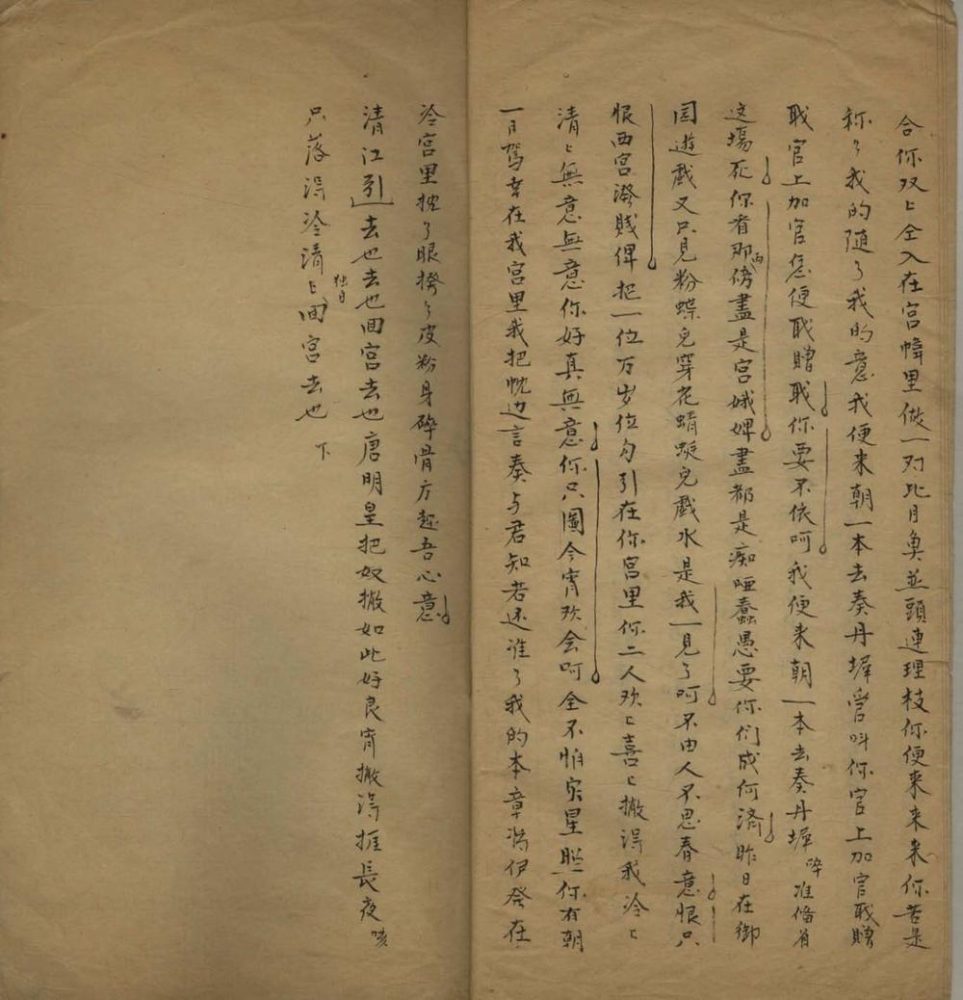 合你双〻仝入在宫幃里做一对比目魚並頭連理枝你便来来来你苦是
称了我的随了我的意我便来朝一本去奏丹墀管叫你官上加官职贈
职官上加官怎便职贈职你要不依呵我便来朝一本去奏丹墀啐准俻着
这塲死你看那两傍盡是宫娥婢盡都是痴哑蠢愚要你们成何濟昨日在御
园遊戲又只見粉蝶兒穿花蜻蜓兒戲水是我一見了呵不由人不思春意恨只
恨西宫潑賎俾把一位万岁位勾引在你宫里你二人欢〻喜〻撇得我冷〻
清〻無意無意你好真無意你只圖今宵欢会呵全不怕灾星照你有朝
一日驾幸在我宫里我把枕边言奏与君知若还准了我的本章将伊發在
冷宫里挖了眼揬了皮粉身碎骨方趁吾心意
清江引去也去也囬宫去也唐明皇把奴撇如此好良宵撇得捱長夜唉
只落得冷清〻独自囬宫去也 下